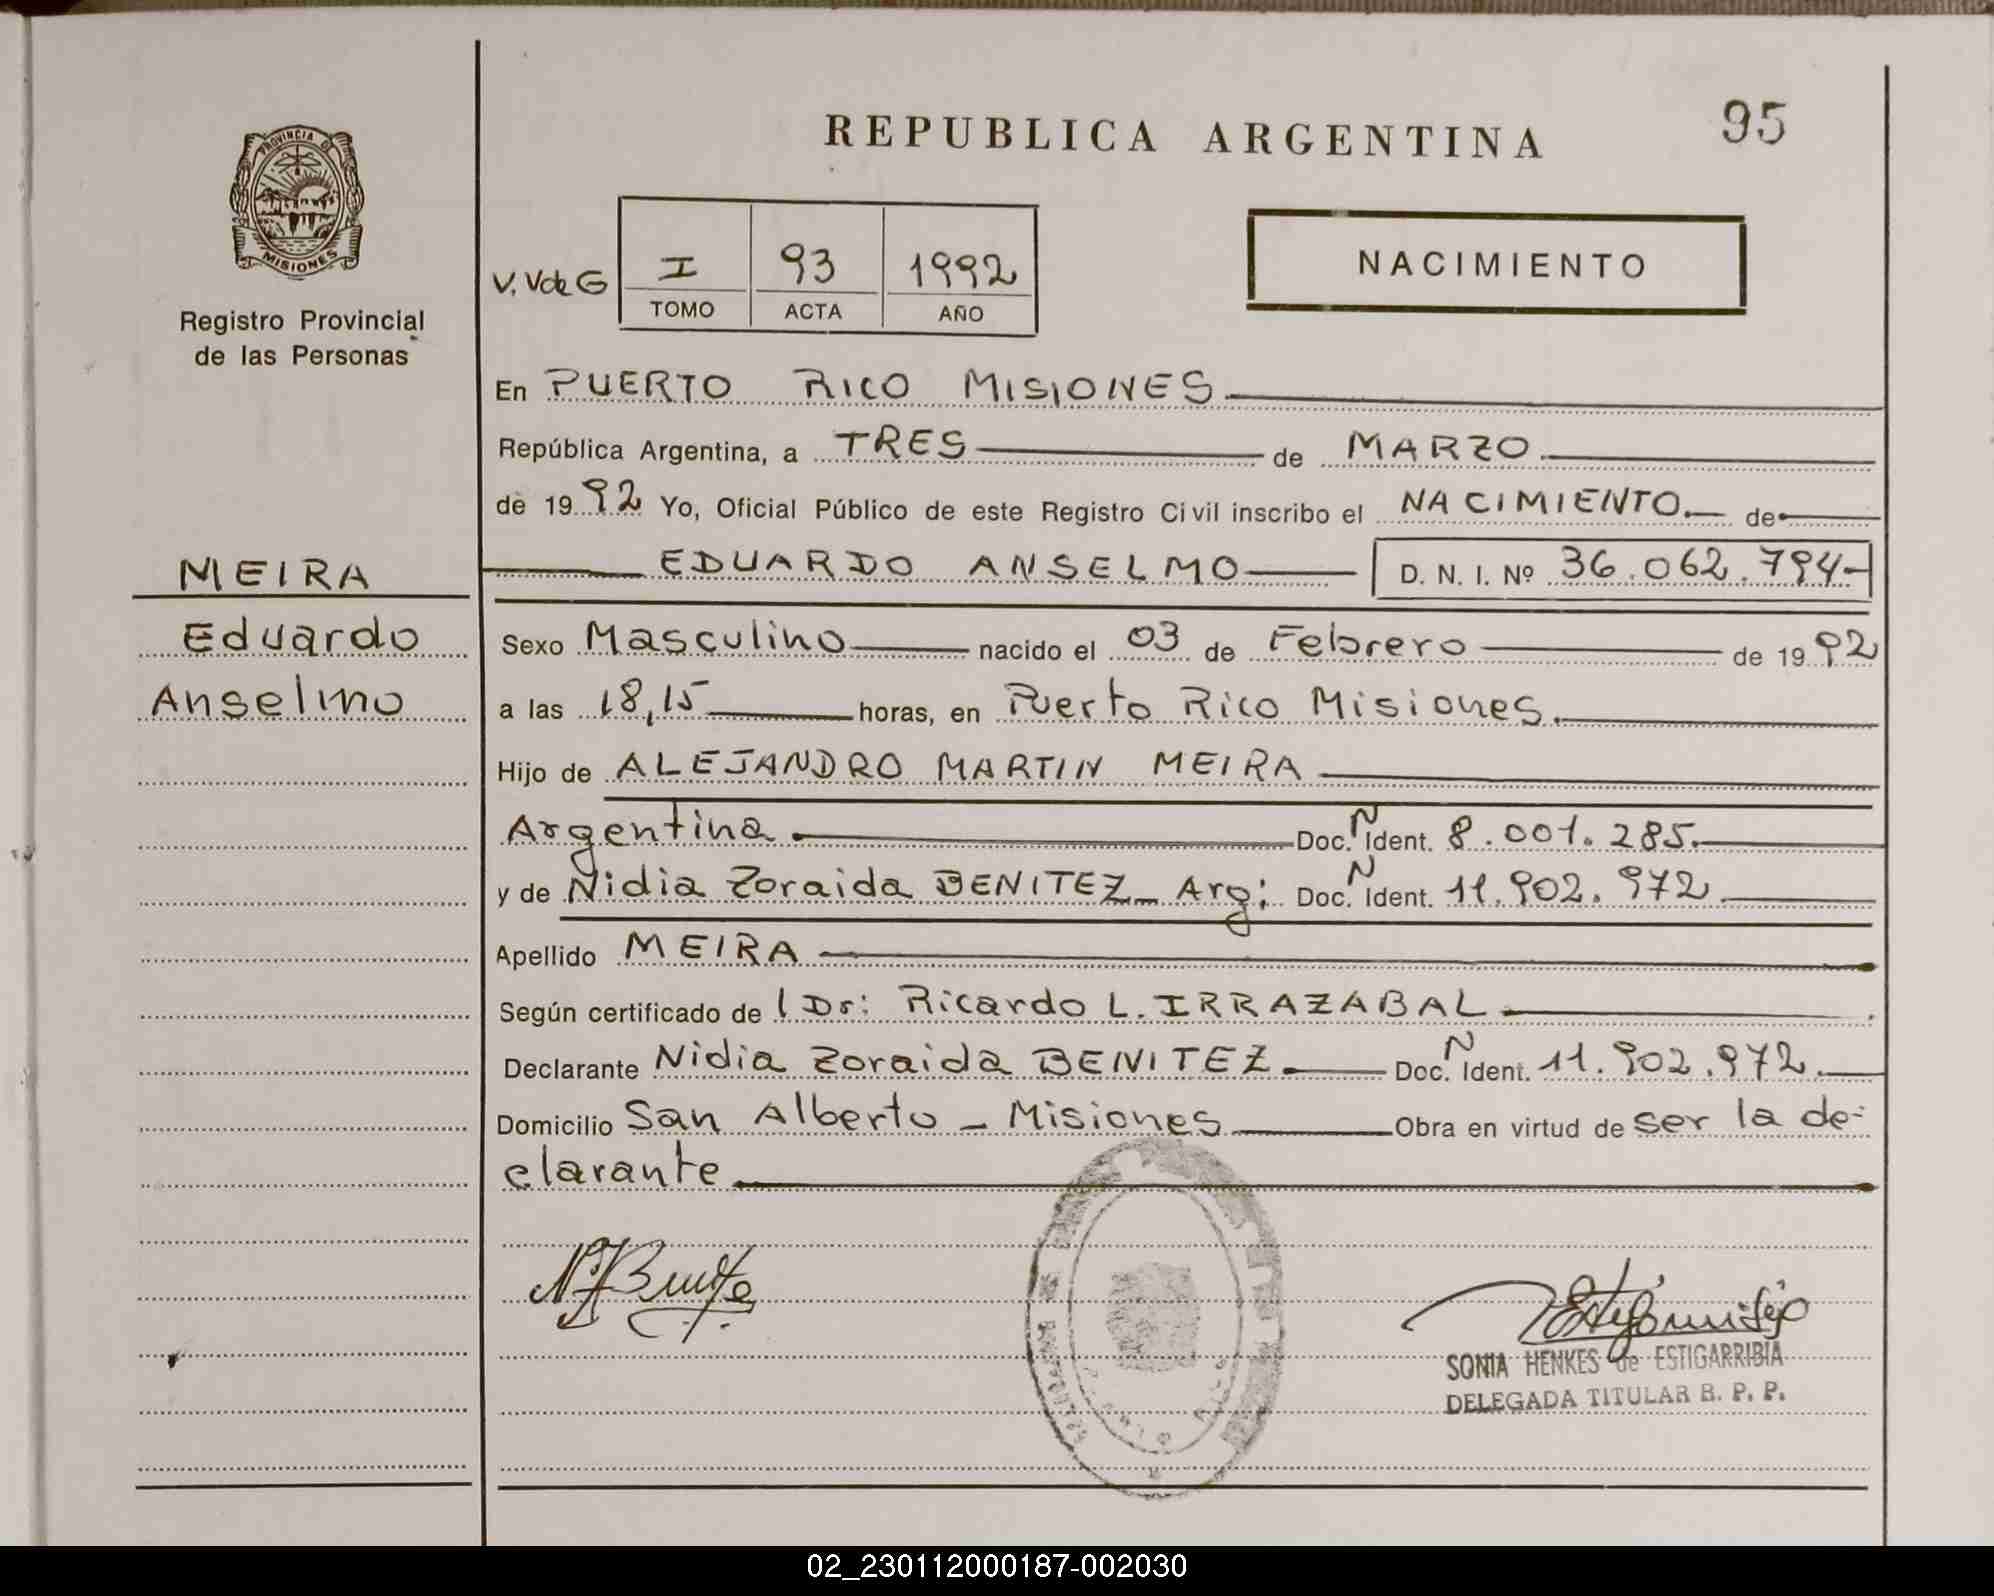 REPUBLICA ARGENTINA
95
PROVINCIA DE
MISIONES
Registro Provincial
de las Personas
V. V de G
I 93 1992
TOMO ACTA AÑO
NACIMIENTO
En PUERTO RICO MISIONES
República Argentina, a TRES de MARZO
de 1992 Yo, Oficial Público de este Registro Civil inscribo el NACIMIENTO. de
EDUARDO ANSELMO D. N. I. Nº 36.062.794-
MEIRA
Eduardo
Anselmo
Sexo Masculino nacido el 03 de Febrero de 1992
a las 18,15 horas, en Puerto Rico Misiones.
Hijo de ALEJANDRO MARTIN MEIRA
Argentina. Doc. N Ident. 8.001.285.
y de Nidia Zoraida BENITEZ_ Arg: Doc. N Ident. 11.902.972
Apellido MEIRA
Según certificado de l Dr: Ricardo L. IRRAZABAL
Declarante Nidia Zoraida BENITEZ. Doc. N Ident. 11.902.972.
Domicilio San Alberto - Misiones Obra en virtud de ser la de-
clarante
SONIA HENKES de ESTIGARRIBIA
DELEGADA TITULAR R. P. P.
02_230112000187-002030